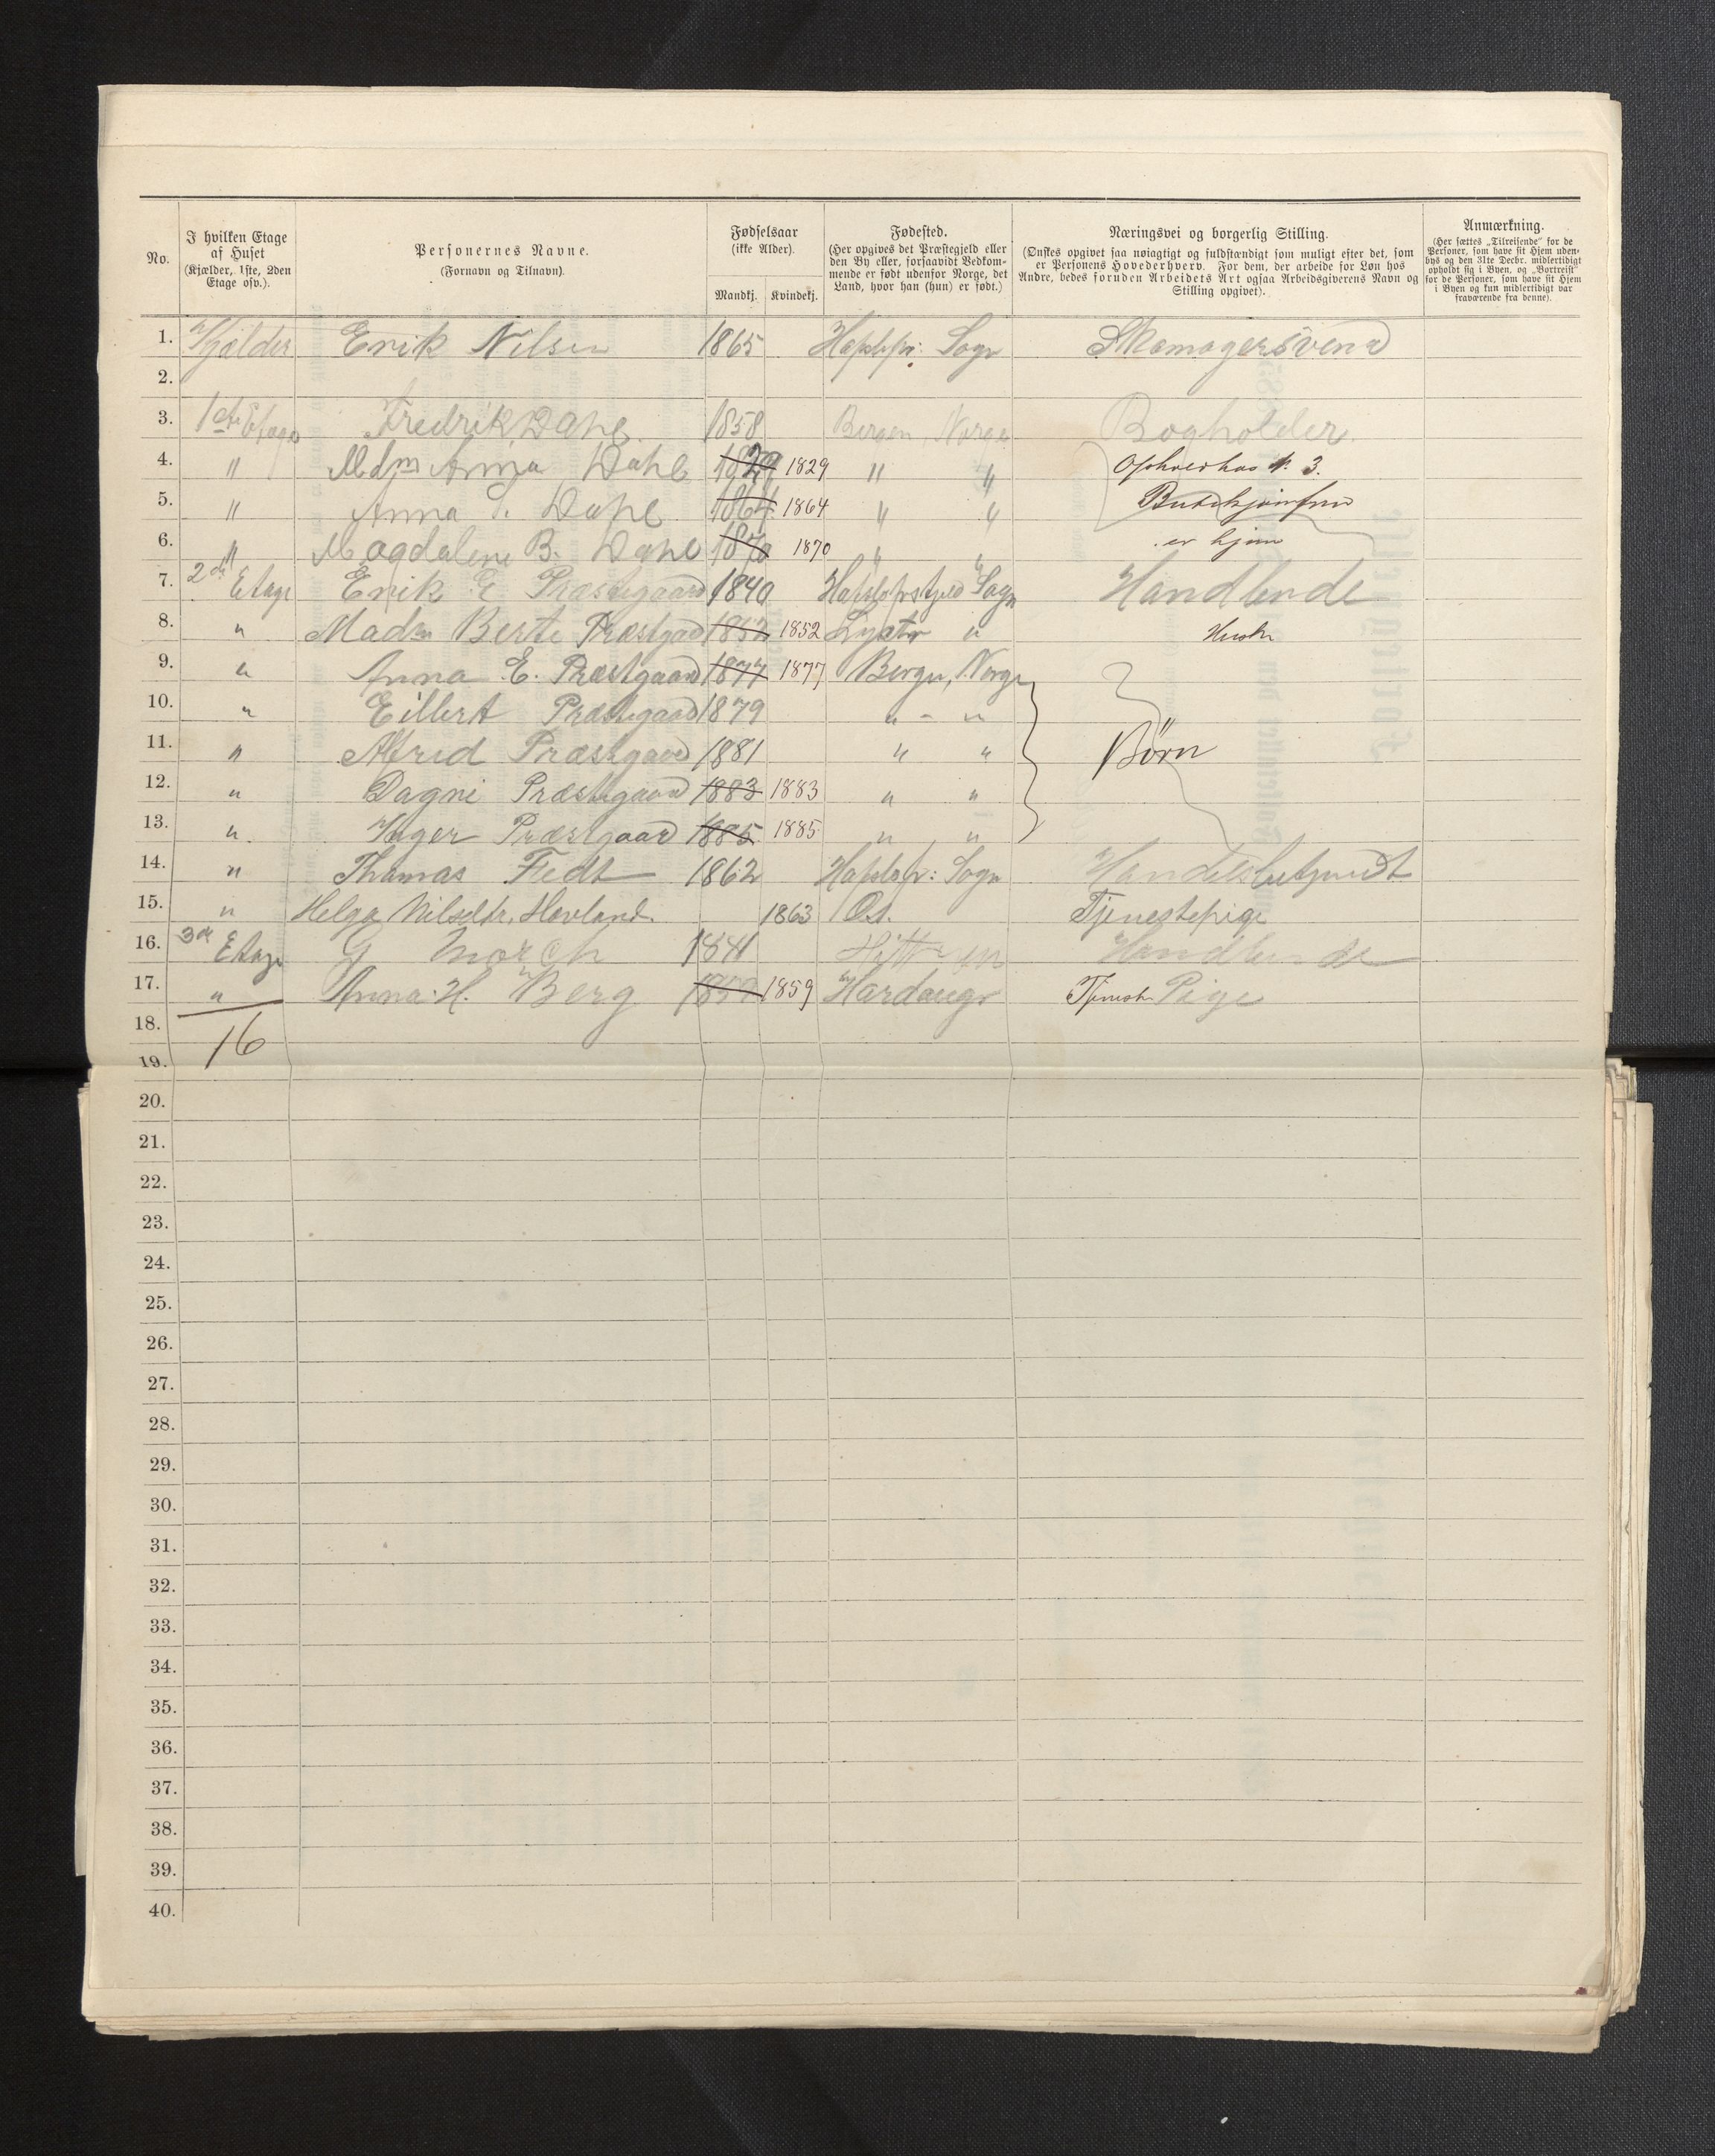 No.
I hvilken Etage af Huset
(Kjælder, 1ste, 2den Etage osv.).
Personernes Navne.
(Fornavn og Tilnavn).
Fødselsaar
(ikke Alder).
Mandkj. Kvindekj.
Fødested.
(Her opgives det Præstegjeld eller
den By eller, forsaavidt Vedkom-
mende er født udenfor Norge, det
Land, hvor han (hun) er født.)
Næringsvei og borgerlig Stilling.
(Ønskes opgivet saa nøiagtigt og fuldstændigt som muligt efter det, som
er Personens Hovederhverv. For dem, der arbeide for Løn hos
Andre, bedes foruden Arbeidets Art ogsaa Arbeidsgiverens Navn og
Stilling opgivet).
Anmærkning.
(Her sættes „Tilreisende“ for de
Personer, som have sit Hjem uden-
bys og den 31te Decbr. midlertidigt
opholdt sig i Byen, og „Bortreist“
for de Personer, som have sit Hjem
i Byen og kun midlertidigt var
fraværende fra denne).
1. Kjælder Erik Nilsen 1865 Hafslopr: Sogn Skomagersvend
2.
3. 1ste Etage Fredrik Dahl 1858 Bergen, Norge Bogholder.
4. " Mdm Anna Dahl 1829 1829 " " No. 3.
5. " Anna S. Dahl 1864 1864 " "
6. " Magdalene B. Dahl 1870 1870 " " er hjem
7. 2den Etage Erik E Præstegaard 1840 Sogn Handlende
8. " Madm Berte Præstgaard 1852 1852 Lyster " Hustr
9. " Anna E. Præstgaard 1877 1877 Bergen, Norge
10. " Eillert Præstegaard 1879 " - "
11. " Alfred Præstgaard 1881 " " Börn
12. " Dagni Præstegaard 1883 1883 " "
13. " Inger Præstgaard 1885 1885 " "
14. " Thomas Fedt 1862 Hafslopr: Sogn Handelsbetjendt
15. " Helga Nilsdtr. Hovland. 1863 Os. Tjenestepige
16. 3de Etage G Morch 1841 Handlende
17. " Anna H. Berg 1859 1859 Hardanger Tjeneste Pige
18.
16
19.
20.
21.
22.
23.
24.
25.
26.
27.
28.
29.
30.
31.
32.
33.
34.
35.
36.
37.
38.
39.
40.